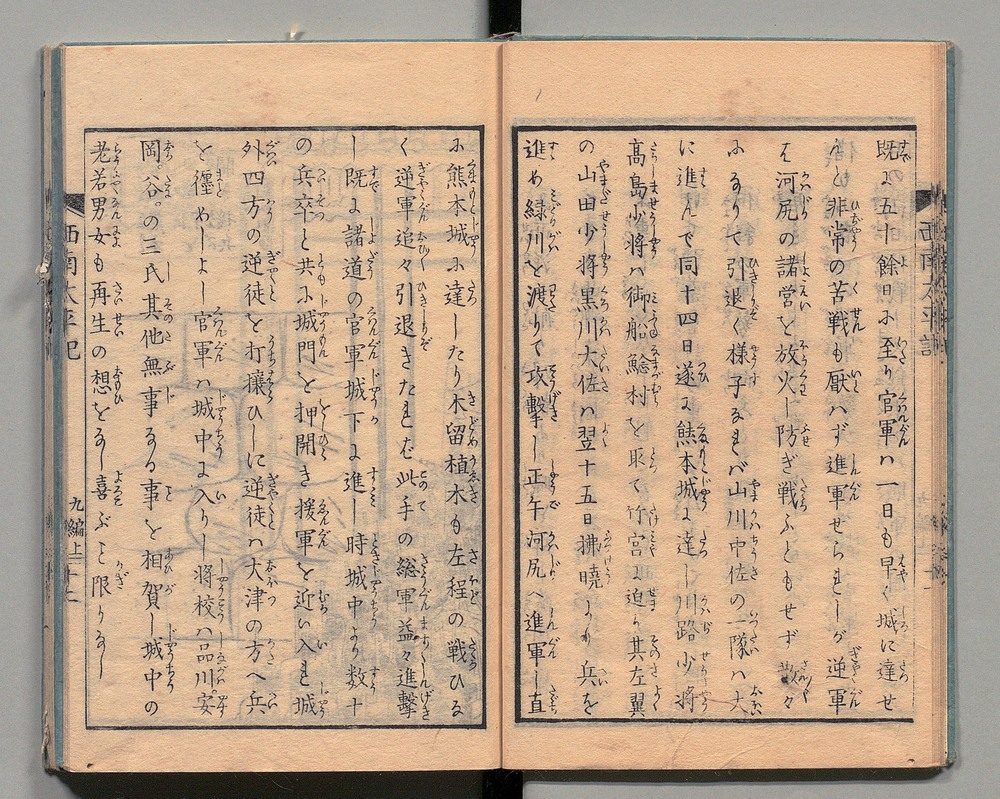 既に五十餘日に至り官軍ハ一日も早く城に達せ
んと非常の苦戦も厭ハず進軍せられしが逆軍
ハ河尻の諸営を放火し防ぎ戦ふともせず散々
になりて引退く様子なれバ山川中佐の一隊ハ大
に進んで同十四日遂に熊本城に達し川路少将
高島少将ハ御船鯰村を取て竹宮に迫り其左翼
の山田少将黒川大佐ハ翌十五日拂暁より兵を
進め緑川を渡りて攻撃し正午河尻へ進軍し直
に熊本城に達したり木留植木も左程の戦ひな
く逆軍追々引退きたれば此手の総軍益々進撃
し既に諸道の官軍城下に進し時城中より数十
の兵卒と共に城門を押開き援軍を迎い入れ城
外四方の逆徒を打攘ひしに逆徒ハ大津の方へ兵
を纒めしよし官軍ハ城中に入りし将校ハ品川。安
岡。谷。の三氏其他無事なる事を相賀し城中の
老若男女も再生の想をなし喜ぶこと限りなし
西南太平記
九編上